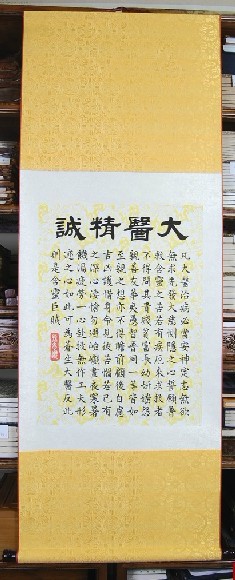 大醫精誠
凡大醫治病必當安神定志無欲
無求先發大慈惻隱之心誓願普
救含靈之苦若有疾厄來求救者
不得問其貴賤貧富長幼妍媸怨
親善友華夷愚智普同一等皆如
至親之想亦不得瞻前顧後自慮
吉凶護惜身命見彼苦惱若己有
之深心悽愴勿避嶮巇晝夜寒暑
飢渴疲勞一心赴救無作工夫形
迹之心如此可為蒼生大醫反此
則是含靈巨賊